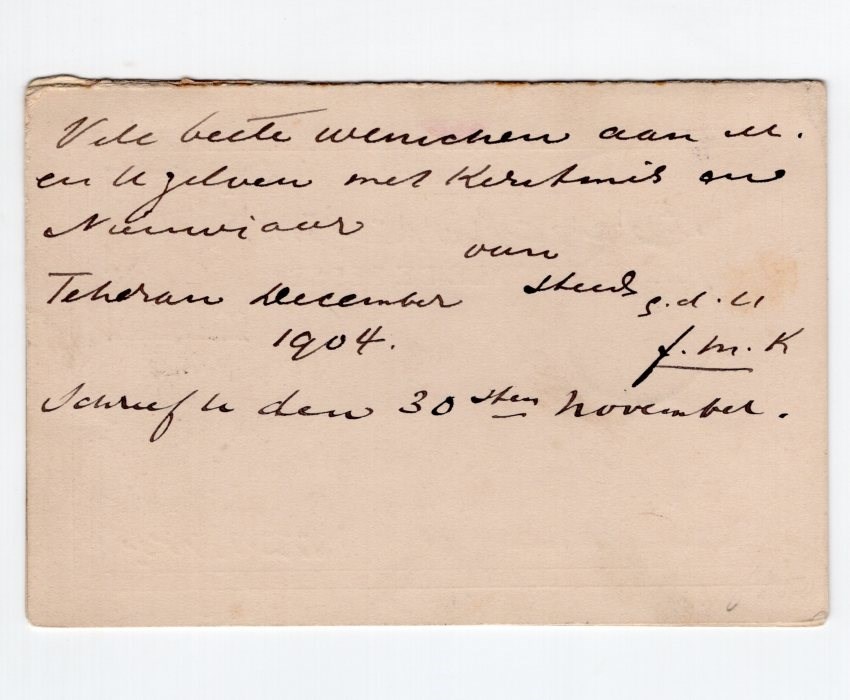 Vele beste wenschen aan U.
en U gelven met Kerstmis en
Nieuwjaar
van
Teheran December steeds g.d.U
1904. f.m.K
Schreef U den 30sten November.